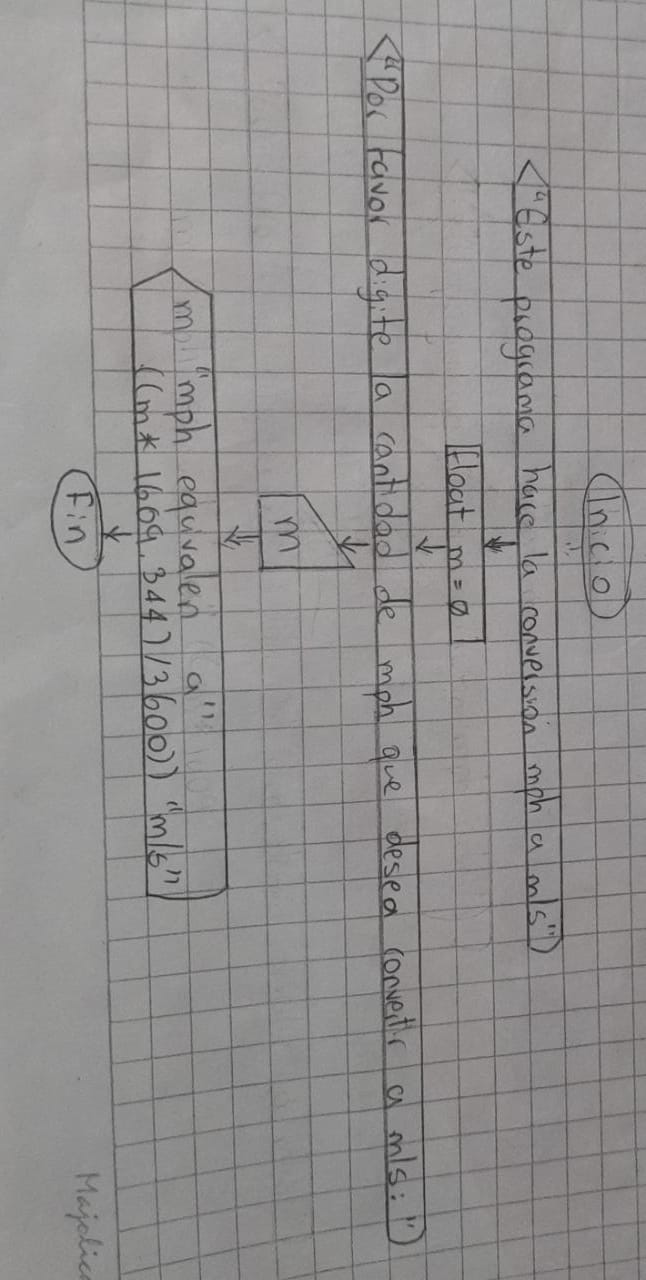 Inicio
"Este programa hace la conversión mph a m/s"
float m = ø
"Por favor digite la cantidad de mph que desea convertir a m/s: "
m
m "mph equivalen a"
((m* 1609.344)/3600)) "m/s"
Fin